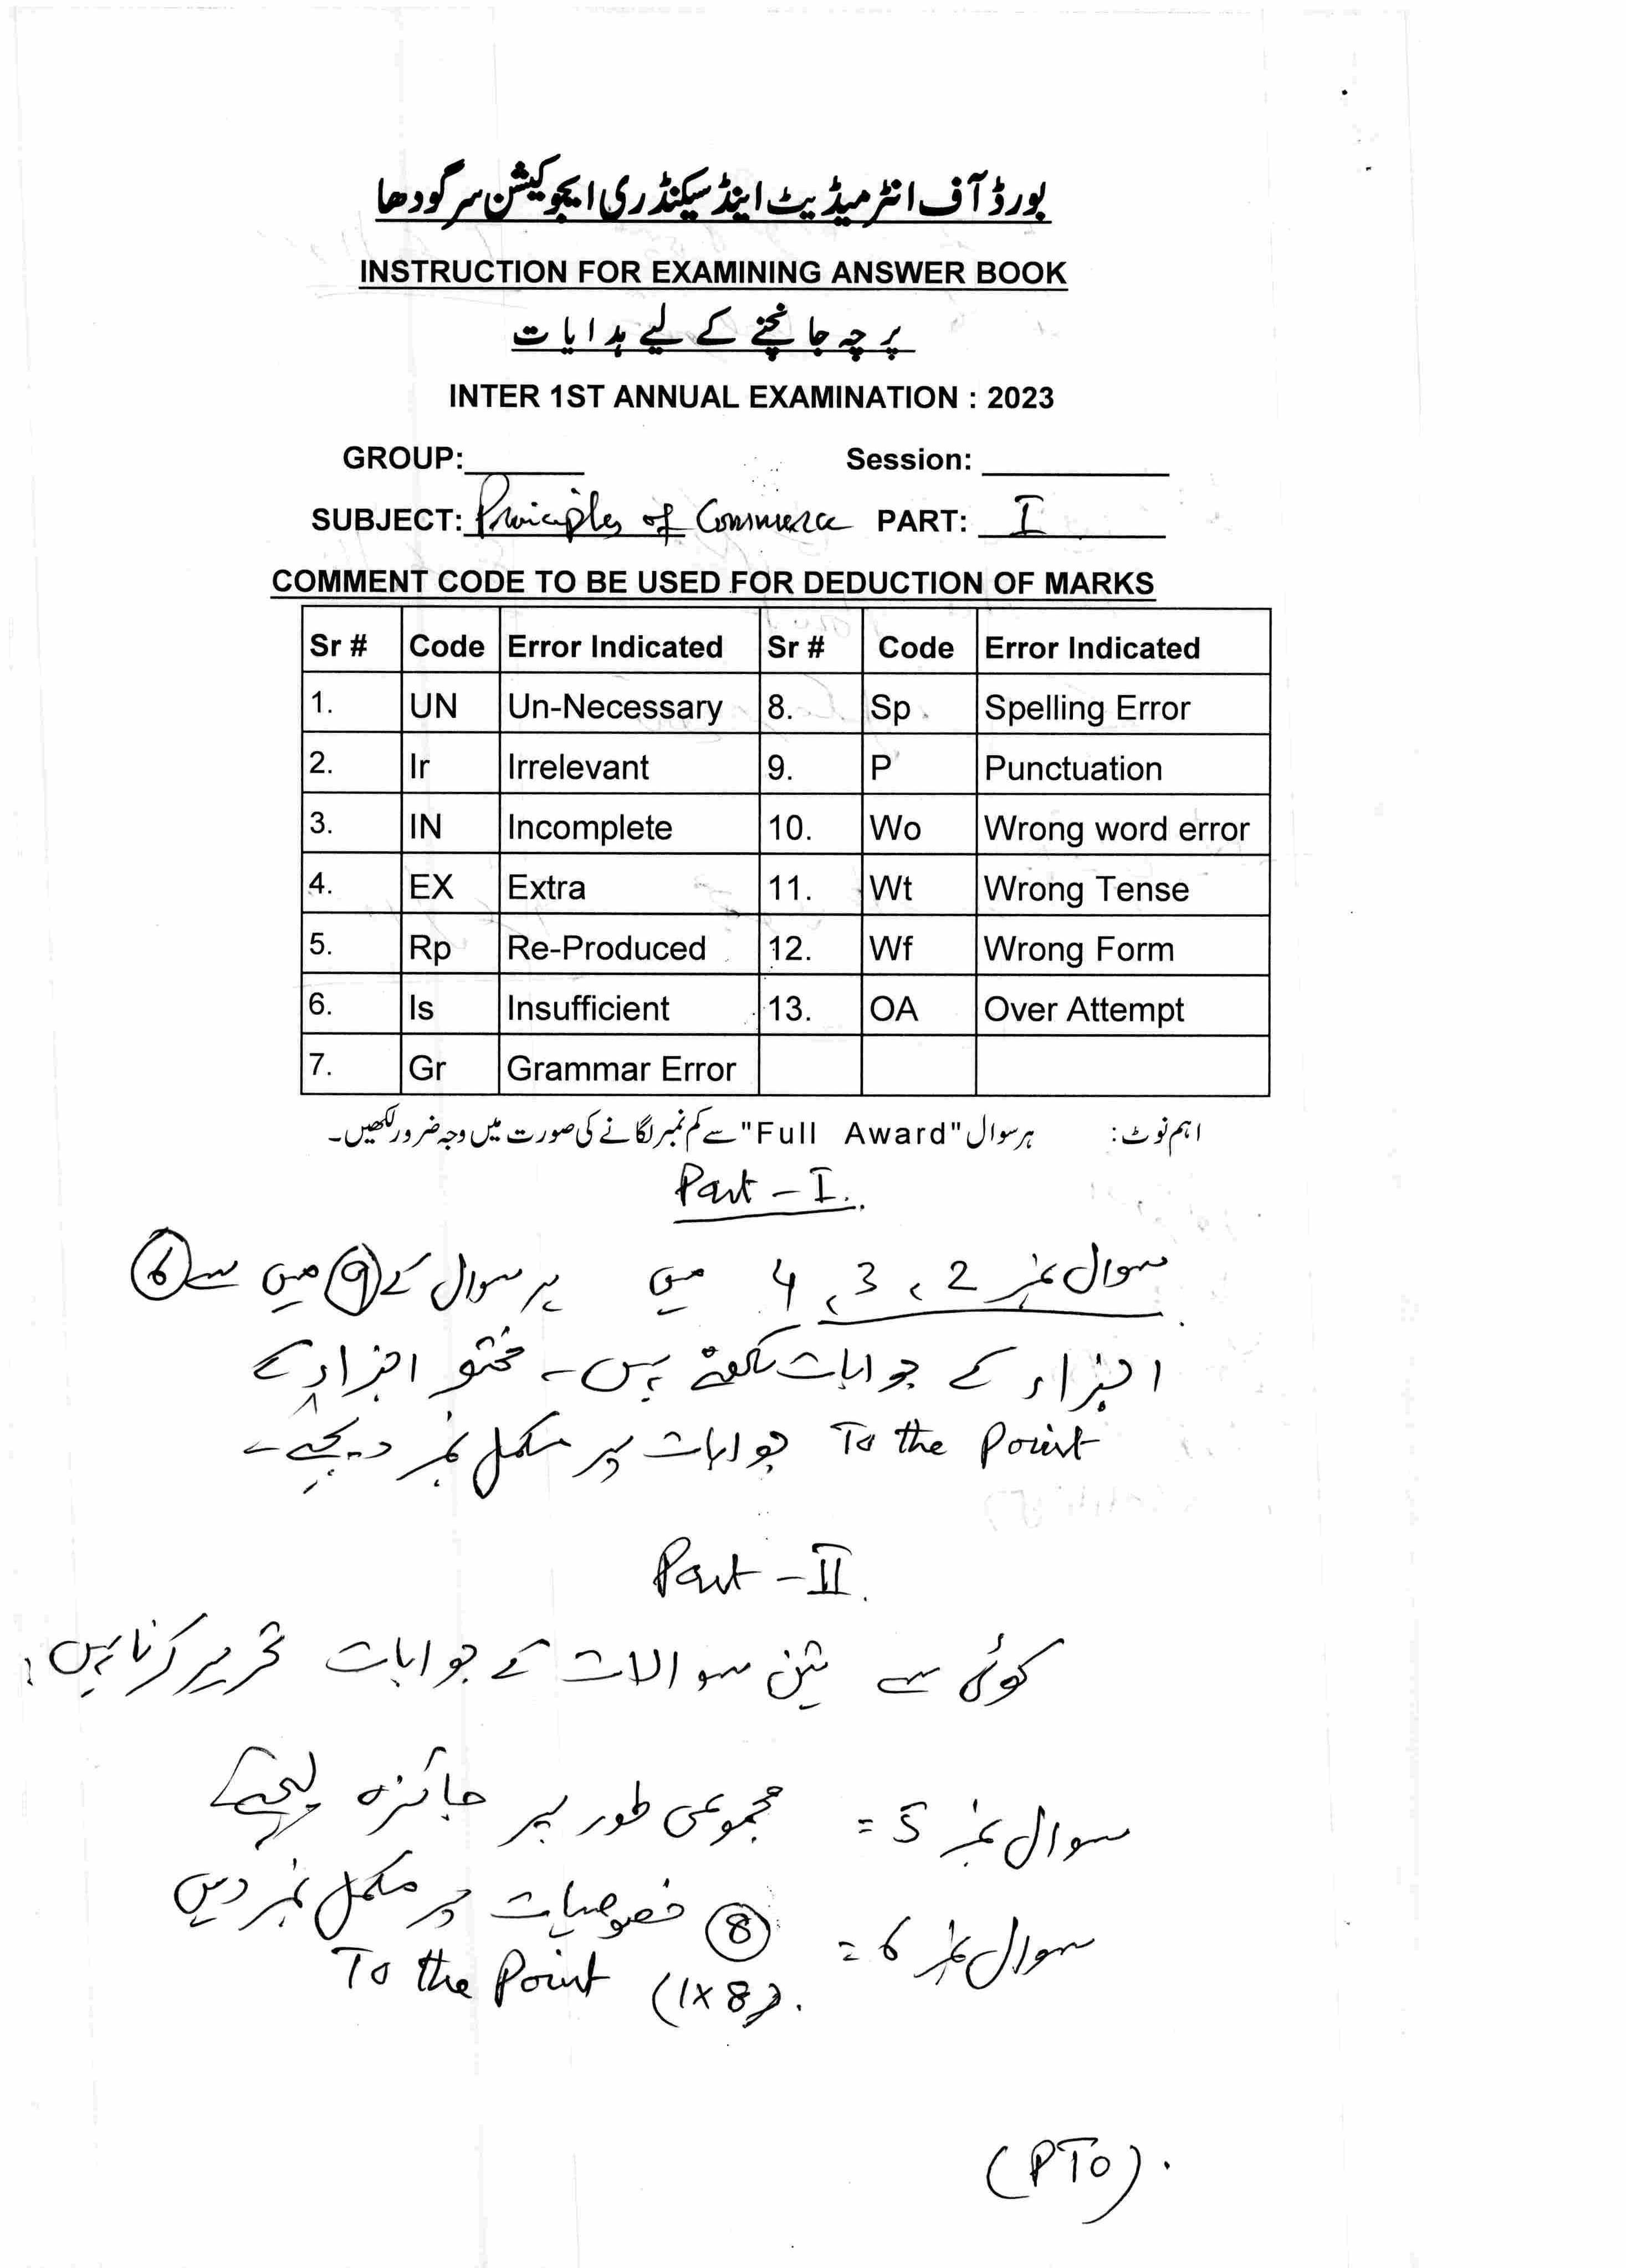 بورڈ آف انٹرمیڈیٹ اینڈ سیکنڈری ایجوکیشن سرگودھا
INSTRUCTION FOR EXAMINING ANSWER BOOK
پرچہ جانچنے کے لیے ہدایات
INTER 1ST ANNUAL EXAMINATION : 2023
GROUP: Session:
SUBJECT: Principles of Commerce PART: I
COMMENT CODE TO BE USED FOR DEDUCTION OF MARKS
Sr # Code Error Indicated Sr # Code Error Indicated
1. UN Un-Necessary 8. Sp Spelling Error
2. Ir Irrelevant 9. P Punctuation
3. IN Incomplete 10. Wo Wrong word error
4. EX Extra 11. Wt Wrong Tense
5. Rp Re-Produced 12. Wf Wrong Form
6. Is Insufficient 13. OA Over Attempt
7. Gr Grammar Error
اہم نوٹ: ہر سوال "Full Award" سے کم نمبر لگانے کی صورت میں وجہ ضرور لکھیں۔
Part - I.
سوال نمبر 2، 3، 4 میں ہر سوال کے 9 میں سے 6
اجزاء کے جوابات لکھنے ہیں۔ مختصر اجزاء کے
To the Point جوابات پر مکمل نمبر دیجیے۔
Part - II.
کوئی سے تین سوالات کے جوابات تحریر کرنا ہیں:
سوال نمبر 5 = مجموعی طور پر جائزہ لیجئے
سوال نمبر 6 = 8 خصوصیات پر مکمل نمبر دیں
To the Point (1x8).
(PTO).